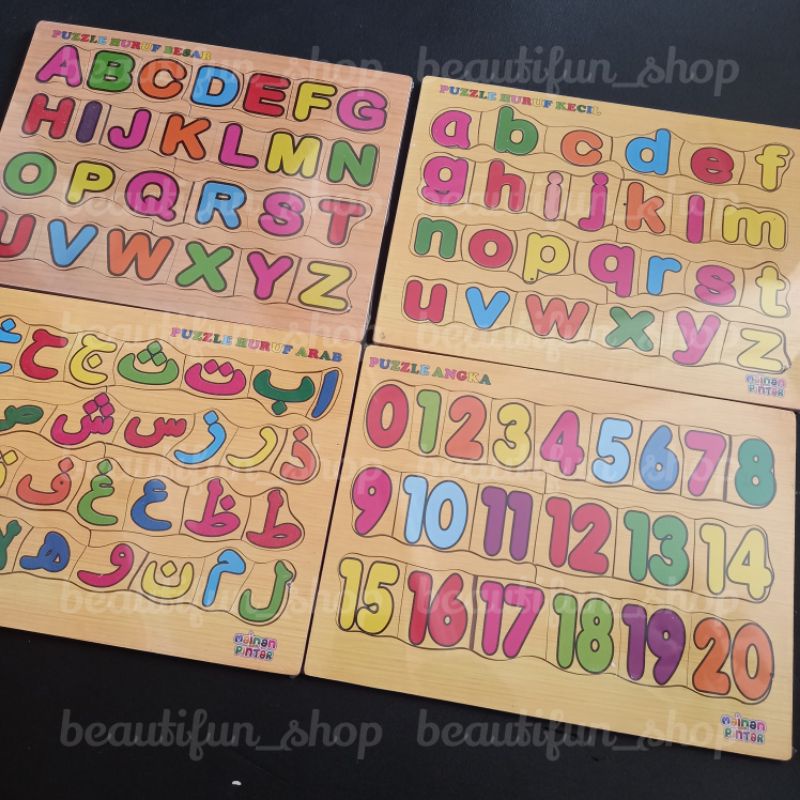 PUZZLE HURUF BESAR
A B C D E F G
H I J K L M N
O P Q R S T
U V W X Y Z
PUZZLE HURUF KECIL
a b c d e f
g h i j k l m
n o p q r s t
u v w x y z
Mainan
PinTar
PUZZLE HURUF ARAB
ا ب ت ث ج ح خ
ذ ر ز س ش ص
ط ظ ع غ ف
ل م ن و ه
Mainan
PinTar
PUZZLE ANGKA
0 1 2 3 4 5 6 7 8
9 10 11 12 13 14
15 16 17 18 19 20
Mainan
PinTar
beautifun_shop beautifun_shop
beautifun_shop beautifun_shop
beautifun_shop beautifun_shop
beautifun_shop beautifun_shop
beautifun_shop beautifun_shop
beautifun_shop beautifun_shop